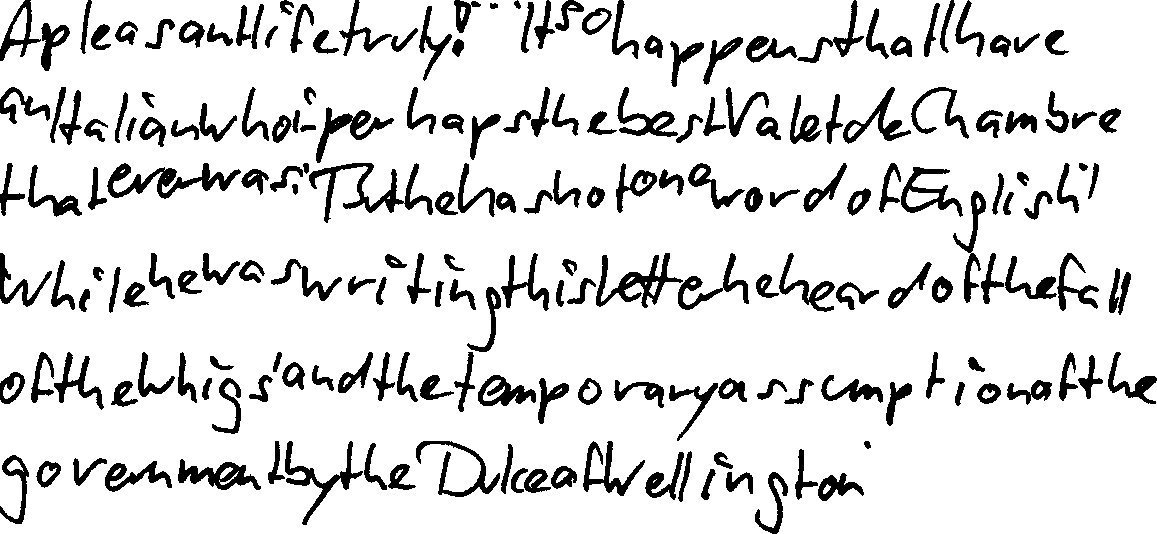 A pleasant life truly! ... "It so happens that I have
an Italian who is perhaps the best Valet de Chambre
that ever was. But he has not one word of English."
While he was writing this letter he heard of the fall
of the Whigs' and the temporary assumption of the
government by the Duke of Wellington.